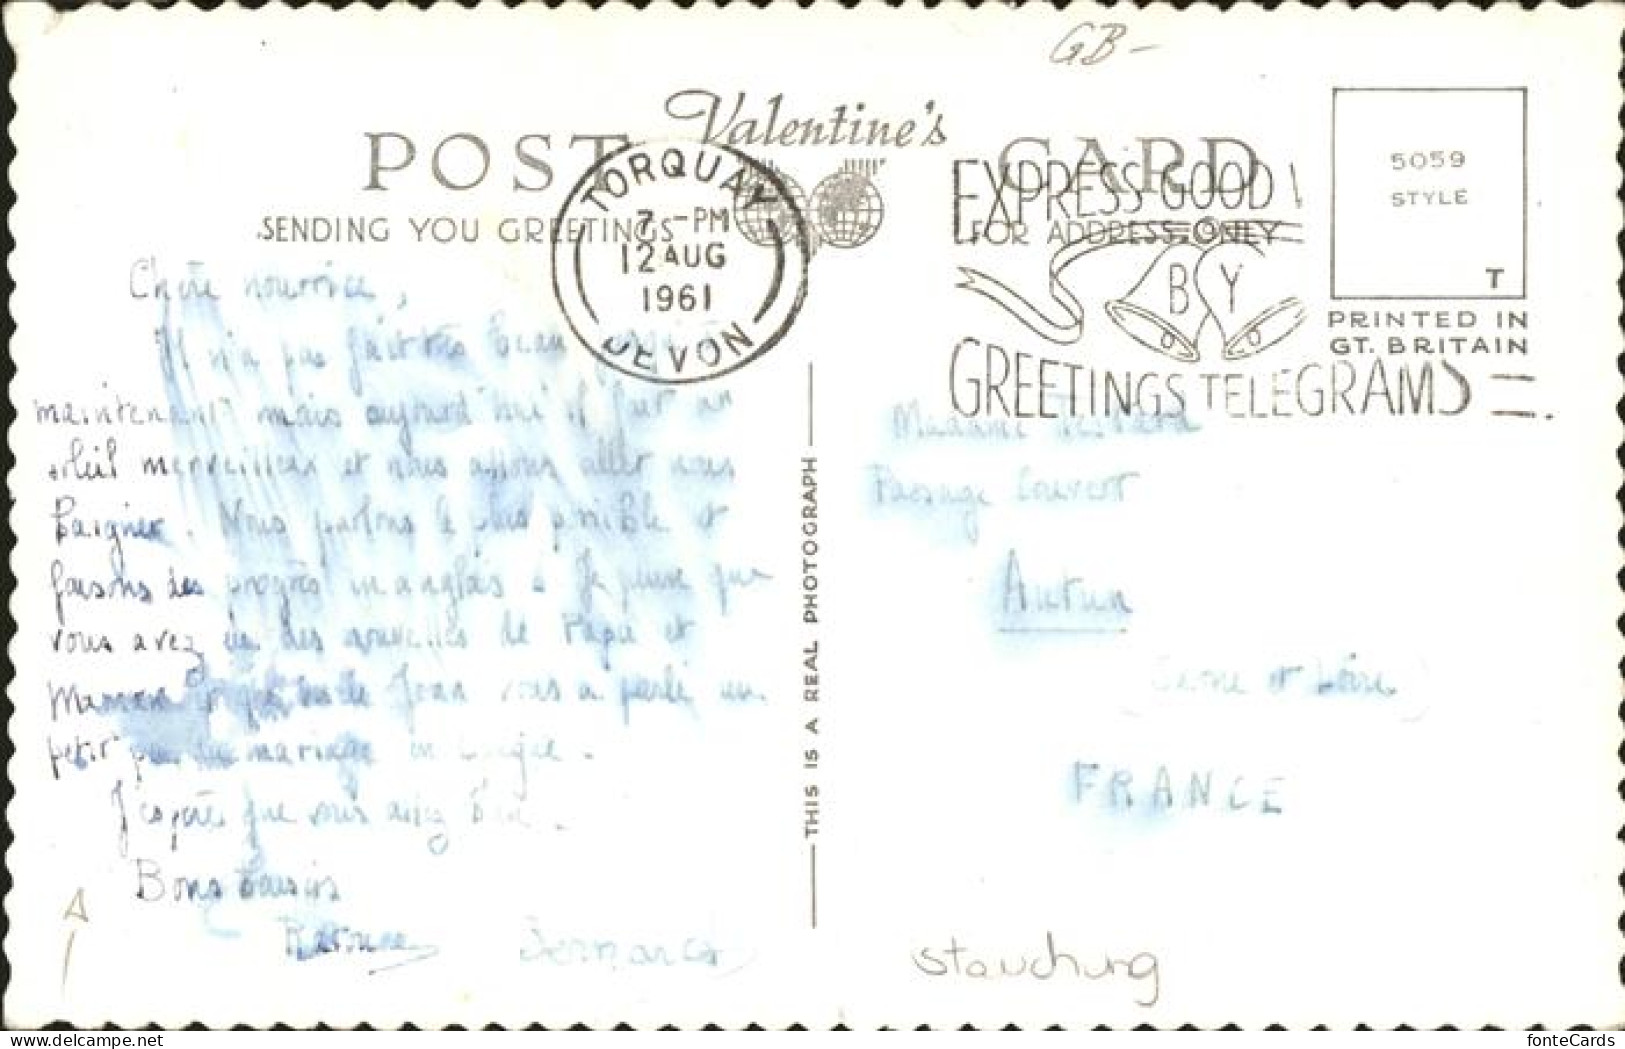 GB-
Valentine's
POST CARD
TORQUAY
7-PM
12 AUG
1961
DEVON
EXPRESS GOOD
BY
GREETINGS TELEGRAMS
SENDING YOU GREETINGS
FOR ADDRESS ONLY
5059
STYLE
T
PRINTED IN
GT. BRITAIN
Chère nourrice,
Il n'a pas fait très beau
maintenant mais aujourd'hui il fait un
soleil merveilleux et nous allons aller nous
baigner. Nous parlons le plus possible et
faisons des progrès en anglais. Je pense que
vous avez eu des nouvelles de Papa et
Maman et que Joan vous a parlé un
petit peu du mariage en
J'espère que vous allez bien.
Bons baisers
Bernard
THIS IS A REAL PHOTOGRAPH
Madame
Passage Couvert
Autun
(Saone et Loire)
FRANCE
stauchung
fonteCards